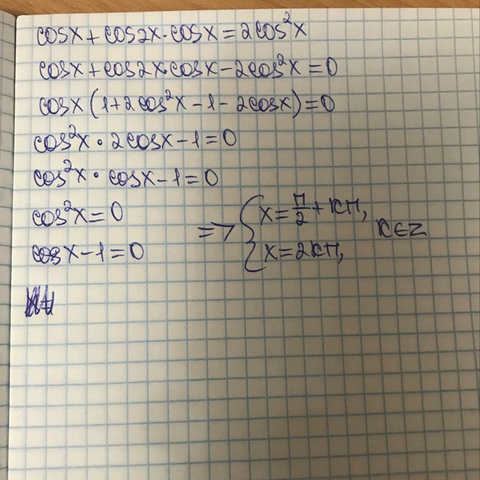 cosx+cos2x·cosx=2cos²x
cosx+cos2x·cosx-2cos²x=0
cosx(1+2cos²x-1-2cosx)=0
cos²x·2cosx-1=0
cos²x·cosx-1=0
cos²x=0
cosx-1=0
=> { x=π/2+kπ,
x=2kπ,
k∈Z